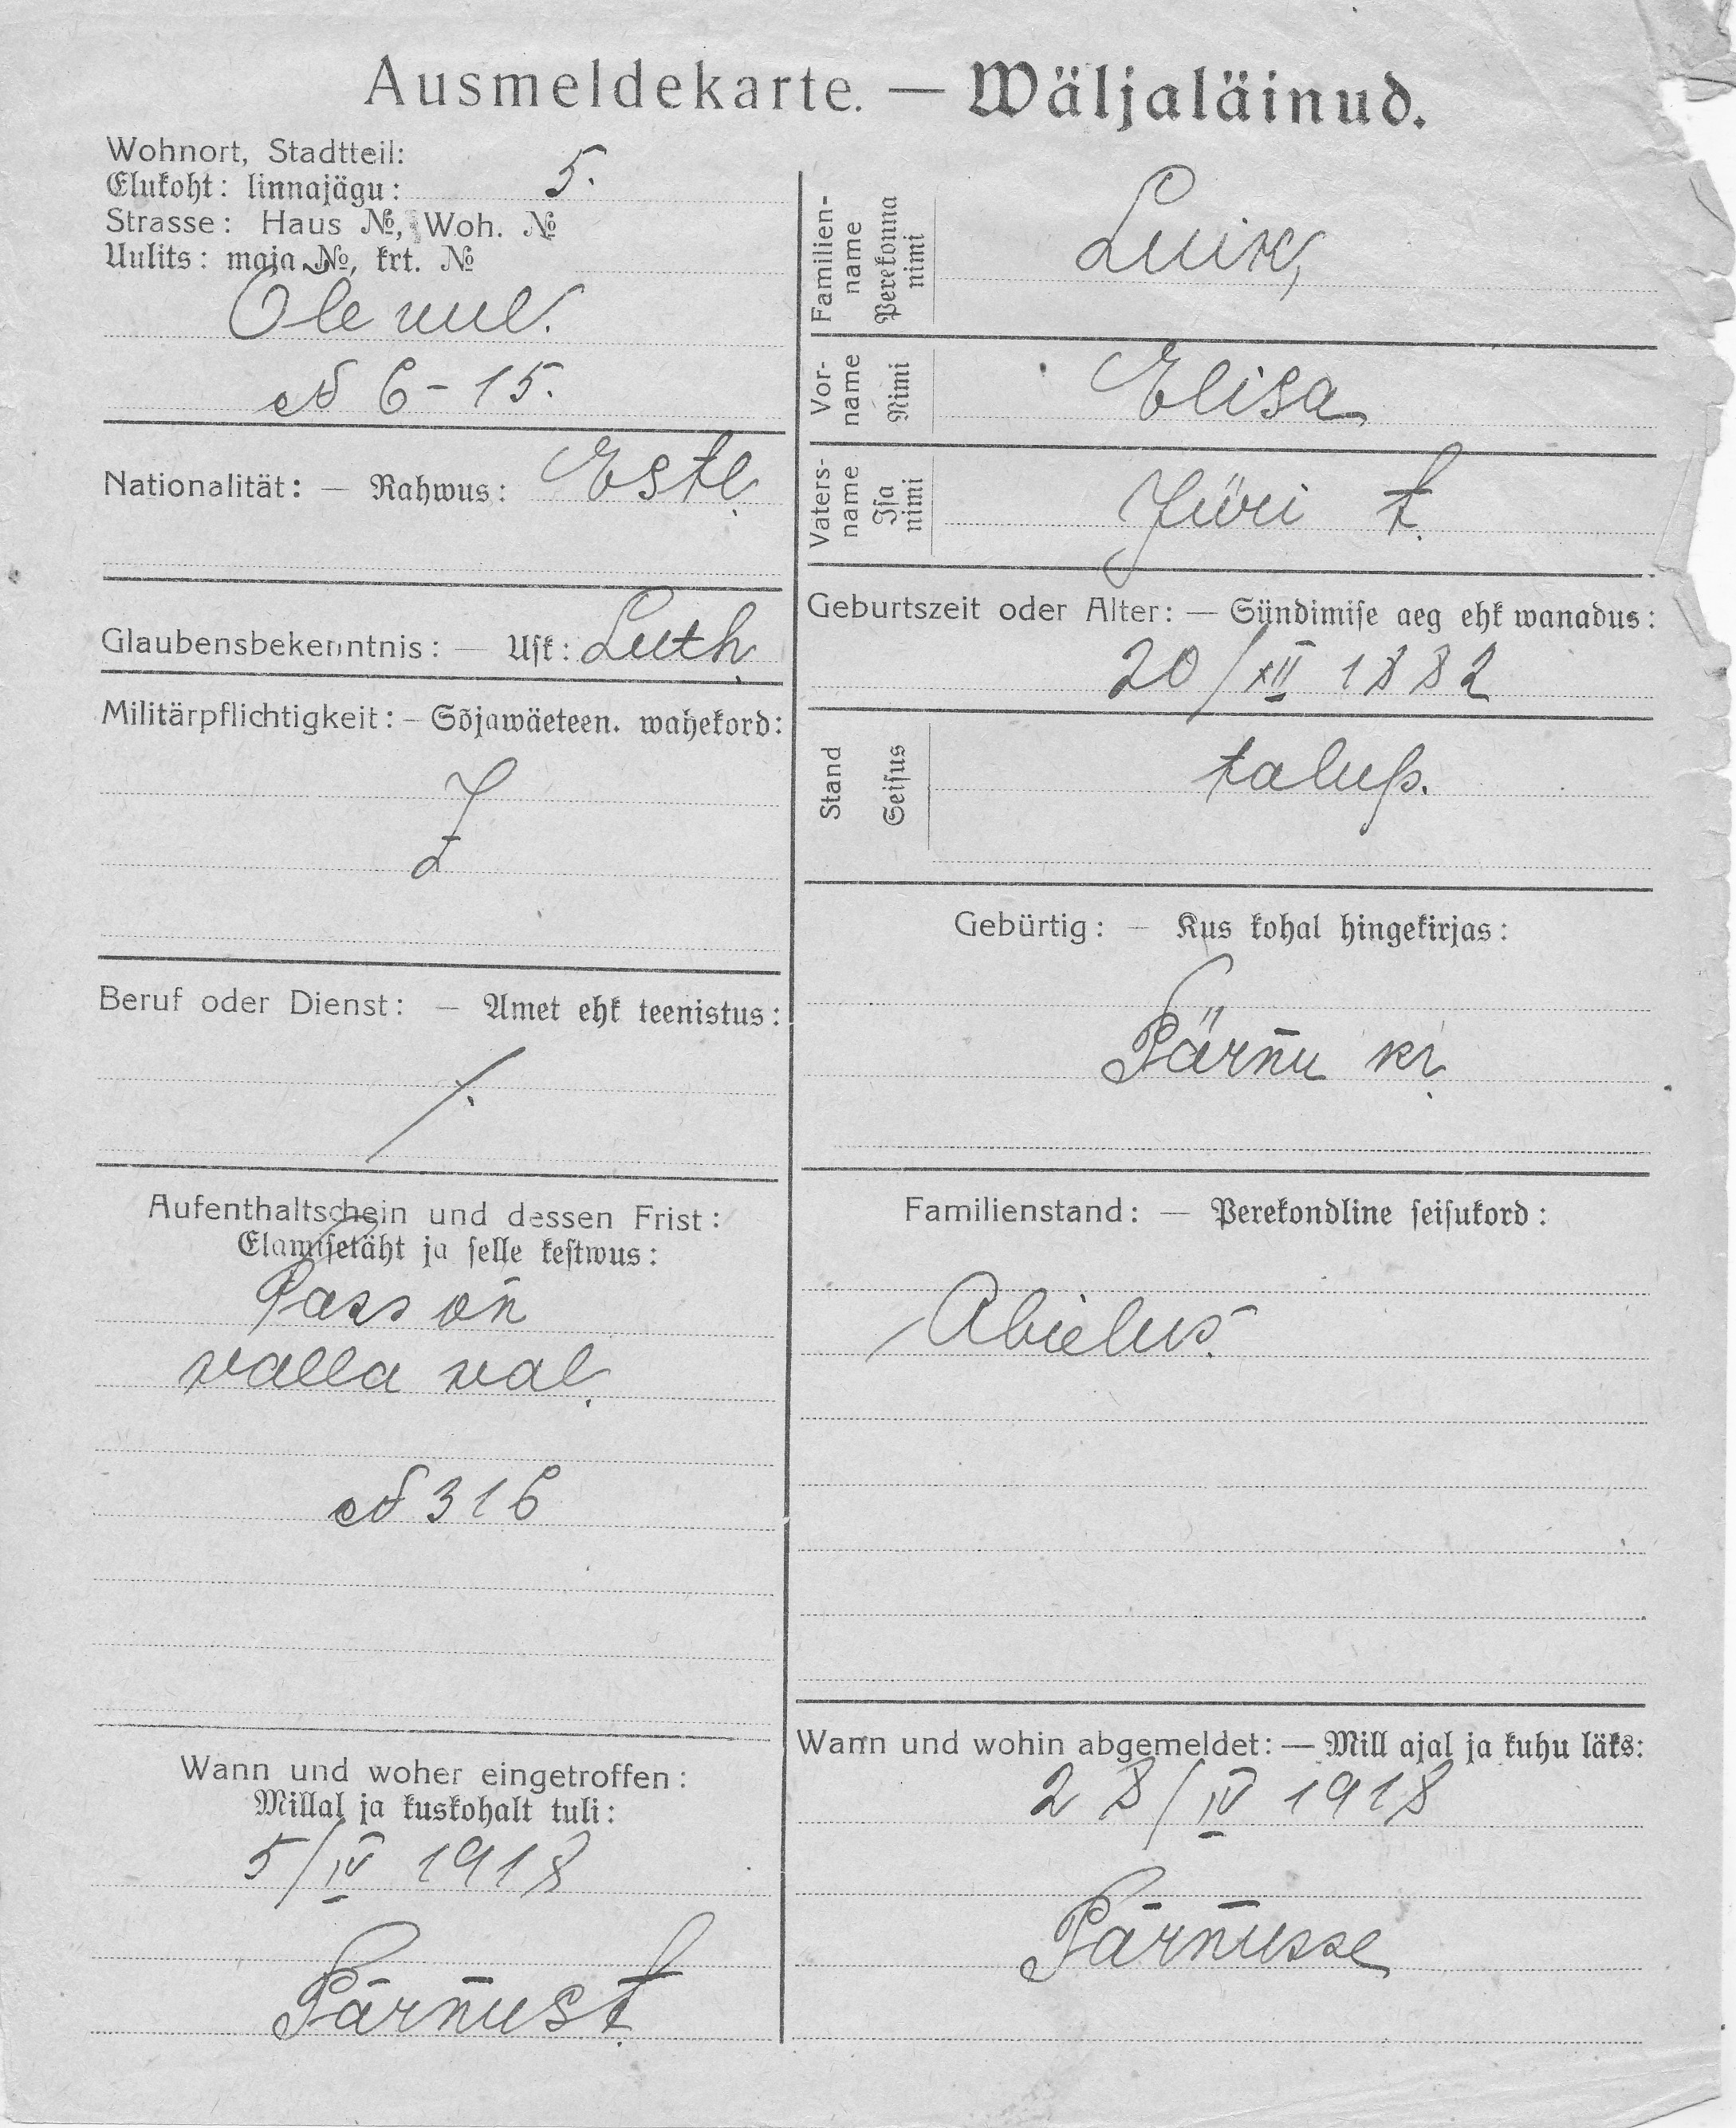 Ausmeldekarte. — Wäljaläinud.
Wohnort, Stadtteil:
Elukoht: linnajägu: 5.
Strasse: Haus №, Woh. №
Uulits: maja №, krt. №
Ole uul.
№ 6-15.
Nationalität: — Rahwus: Estl.
Glaubensbekenntnis: — Usk: Luth.
Militärpflichtigkeit: — Sõjawäeteen. wahekord:
Beruf oder Dienst: — Amet ehk teenistus:
Aufenthaltschein und dessen Frist:
Elamisetäht ja selle kestwus:
Pass on
valla val.
№ 316
Wann und woher eingetroffen:
Millal ja kuskohalt tuli:
5/IV 1918
Pärnust
Familien-
name
Perekonna
nimi
Luik,
Vor-
name
Nimi
Elisa
Vaters-
name
Isa
nimi
Jüri t.
Geburtszeit oder Alter: — Sündimise aeg ehk wanadus:
20/XII 1882
Stand
Seisus
talup.
Gebürtig: — Kus kohal hingekirjas:
Pärnu kr.
Familienstand: — Perekondline seisukord:
Abielus.
Wann und wohin abgemeldet: — Mill ajal ja kuhu läks:
28/IV 1918
Pärnusse